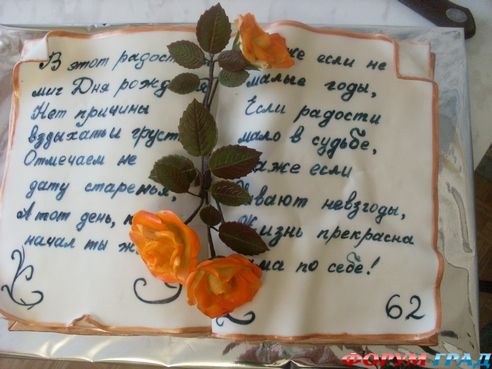 В этот
миг Дня
Нет причины
вздыхать и
Отмечаем не
дату старенья,
А тот день,
начал ты
если не
малые годы,
Если радости
мало в судьбе,
если
невзгоды,
прекрасна
по себе!
62
ФОРУМ-ГРАД